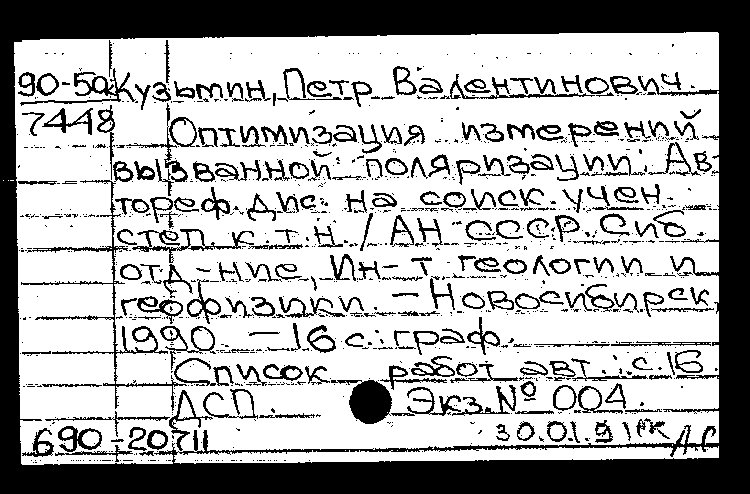 90-5а Кузьмин, Петр Валентинович.
7448
Оптимизация измерений
вызванной поляризации: Ав-
тореф. дис. на соиск. учен.
степ. к. т. н. / АН СССР. Сиб.
отд-ние, Ин-т геологии и
геофизики. - Новосибирск,
1990. - 16 с.: граф.
Список работ авт.: с. 16.
ДСП. Экз. № 004.
690-20711 30.01.91 А.С